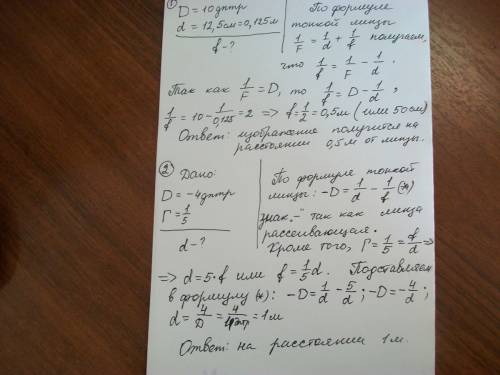 ①
D = 10 дптр
d = 12,5см = 0,125м
f - ?
По формуле
тонкой линзы
1/F = 1/d + 1/f получаем,
что 1/f = 1/F - 1/d.
Так как 1/F = D, то 1/f = D - 1/d ;
1/f = 10 - 1/0,125 = 2 => f = 1/2 = 0,5м (или 50см)
Ответ: изображение получится на
расстоянии 0,5м от линзы.
② Дано:
D = -4дптр
Г = 1/5
d - ?
По формуле тонкой
линзы: -D = 1/d - 1/f (*)
знак „-" так как линза
рассеивающая.
Кроме того, Г = 1/5 = f/d =>
=> d = 5·f или f = 1/5 d. Подставляем
в формулу (*): -D = 1/d - 5/d ; -D = -4/d ;
d = 4/D = 4/4дптр = 1м
Ответ: на расстоянии 1м.